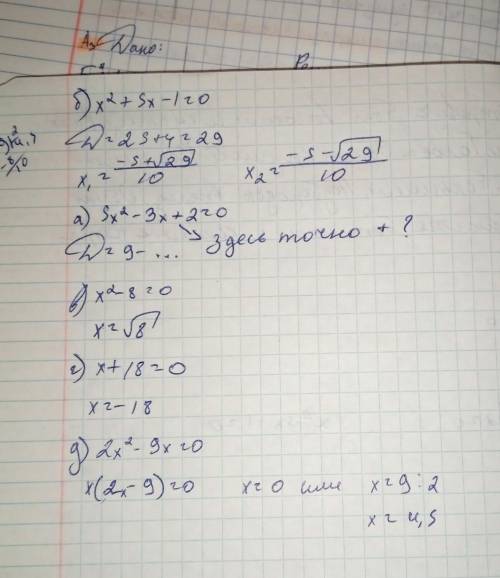 Дано:
б) x² + 5x - 1 = 0
D = 25 + 4 = 29
x₁ = (-5 + √29)/10    x₂ = (-5 - √29)/10
а) 5x² - 3x + 2 = 0
D = 9 - ... → Здесь точно + ?
в) x² - 8 = 0
x = √8
г) x + 18 = 0
x = -18
д) 2x² - 9x = 0
x(2x - 9) = 0    x = 0 или x = 9 : 2
x = 4,5